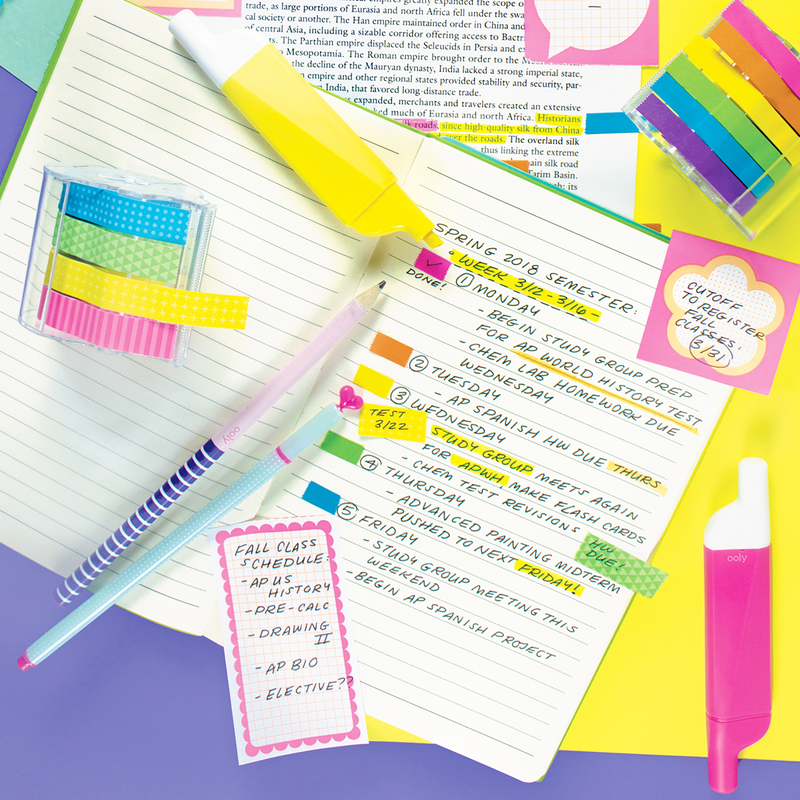 trade, as large portions of Eurasia and north Africa fell under the swa
cal society or another. The Han empire maintained order in China and
of central Asia, including a sizable corridor offering access to Bactr
The Parthian empire displaced the Seleucids in Persia and ex
Mesopotamia. The Roman empire brought order to the
the decline of the Mauryan dynasty, India lacked a strong imperial state,
empire and other regional states provided stability and security, par-
India, that favored long-distance trade.
expanded, merchants and travelers created an extensive
ked much of Eurasia and north Africa. Historians
silk roads, since high-quality silk from China
over the roads. The overland silk
thus linking the extreme
ain silk road
Tarim Basin.
its
SPRING 2018 SEMESTER:
• WEEK 3/12 - 3/16 -
DONE!
① MONDAY
- BEGIN STUDY GROUP PREP
FOR AP WORLD HISTORY TEST
- CHEM LAB HOMEWORK DUE
WEDNESDAY
② TUESDAY
- AP SPANISH HW DUE THURS.
③ WEDNESDAY
TEST
3/22
STUDY GROUP MEETS AGAIN
FOR APWH, MAKE FLASH CARDS
- CHEM TEST REVISIONS
④ THURSDAY
- ADVANCED PAINTING MIDTERM
PUSHED TO NEXT FRIDAY!
HW
DUE!
⑤ FRIDAY
- STUDY GROUP MEETING THIS
WEEKEND
- BEGIN AP SPANISH PROJECT
CUTOFF
TO REGISTER
FALL
CLASSES:
3/31
FALL CLASS
SCHEDULE:
- AP US
HISTORY
- PRE-CALC
- DRAWING
II
- AP BIO
- ELECTIVE??
ooly
ooly